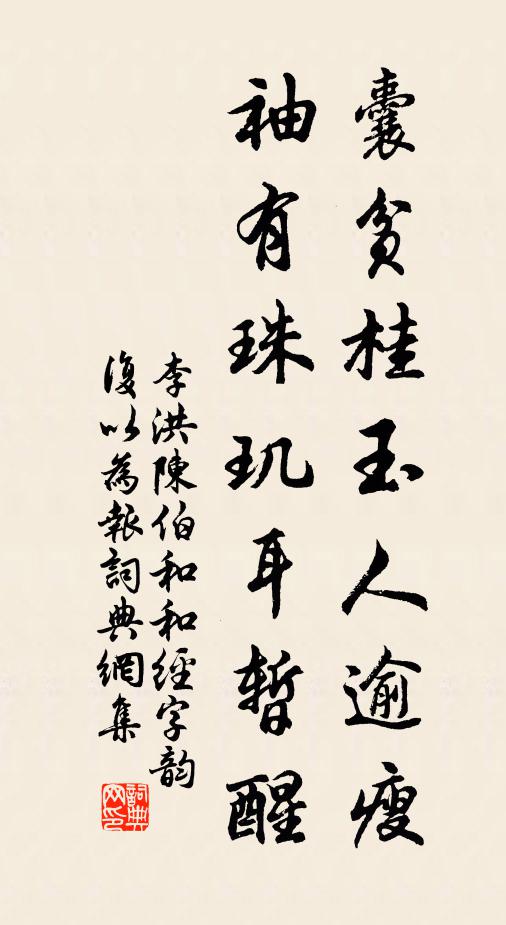 囊貧桂玉人逾瘦
袖有珠玑耳暫醒
李洪陳伯和和經字韵
復以為報詞典網集
詞典网印